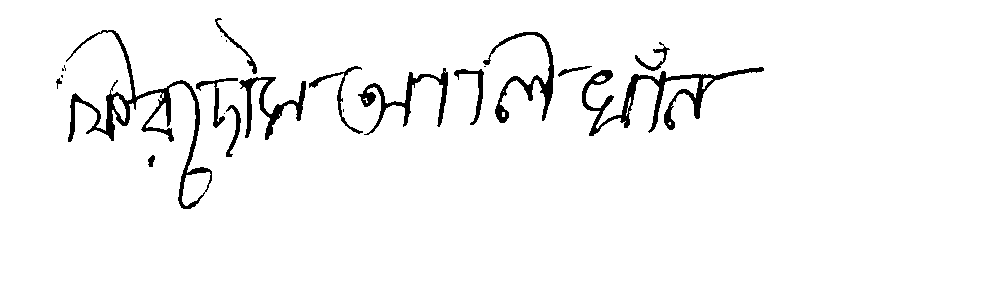 ফিরদৌস আলি খাঁন